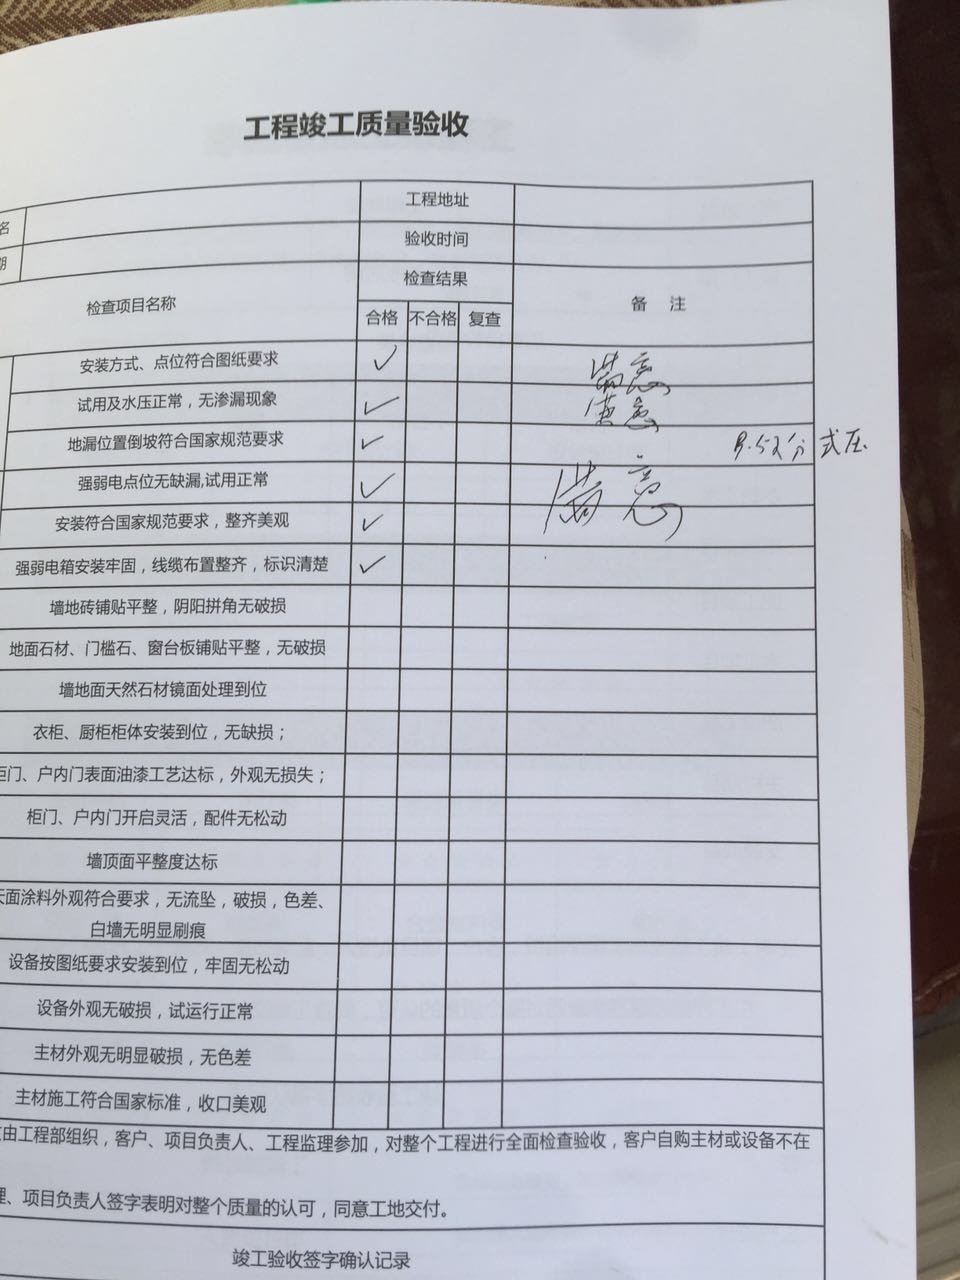 工程竣工质量验收
名 工程地址
期 验收时间
检查项目名称 检查结果 备 注
合格 不合格 复查
安装方式、点位符合图纸要求 ✓ 满意
试用及水压正常，无渗漏现象 ✓ 满意
地漏位置倒坡符合国家规范要求 ✓
强弱电点位无缺漏,试用正常 ✓ 满意
安装符合国家规范要求，整齐美观 ✓
强弱电箱安装牢固，线缆布置整齐，标识清楚 ✓
墙地砖铺贴平整，阴阳拼角无破损
地面石材、门槛石、窗台板铺贴平整，无破损
墙地面天然石材镜面处理到位
衣柜、厨柜柜体安装到位，无缺损；
柜门、户内门表面油漆工艺达标，外观无损失；
柜门、户内门开启灵活，配件无松动
墙顶面平整度达标
面涂料外观符合要求，无流坠，破损，色差、
白墙无明显刷痕
设备按图纸要求安装到位，牢固无松动
设备外观无破损，试运行正常
主材外观无明显破损，无色差
主材施工符合国家标准，收口美观
由工程部组织，客户、项目负责人、工程监理参加，对整个工程进行全面检查验收，客户自购主材或设备不在
理、项目负责人签字表明对整个质量的认可，同意工地交付。
竣工验收签字确认记录